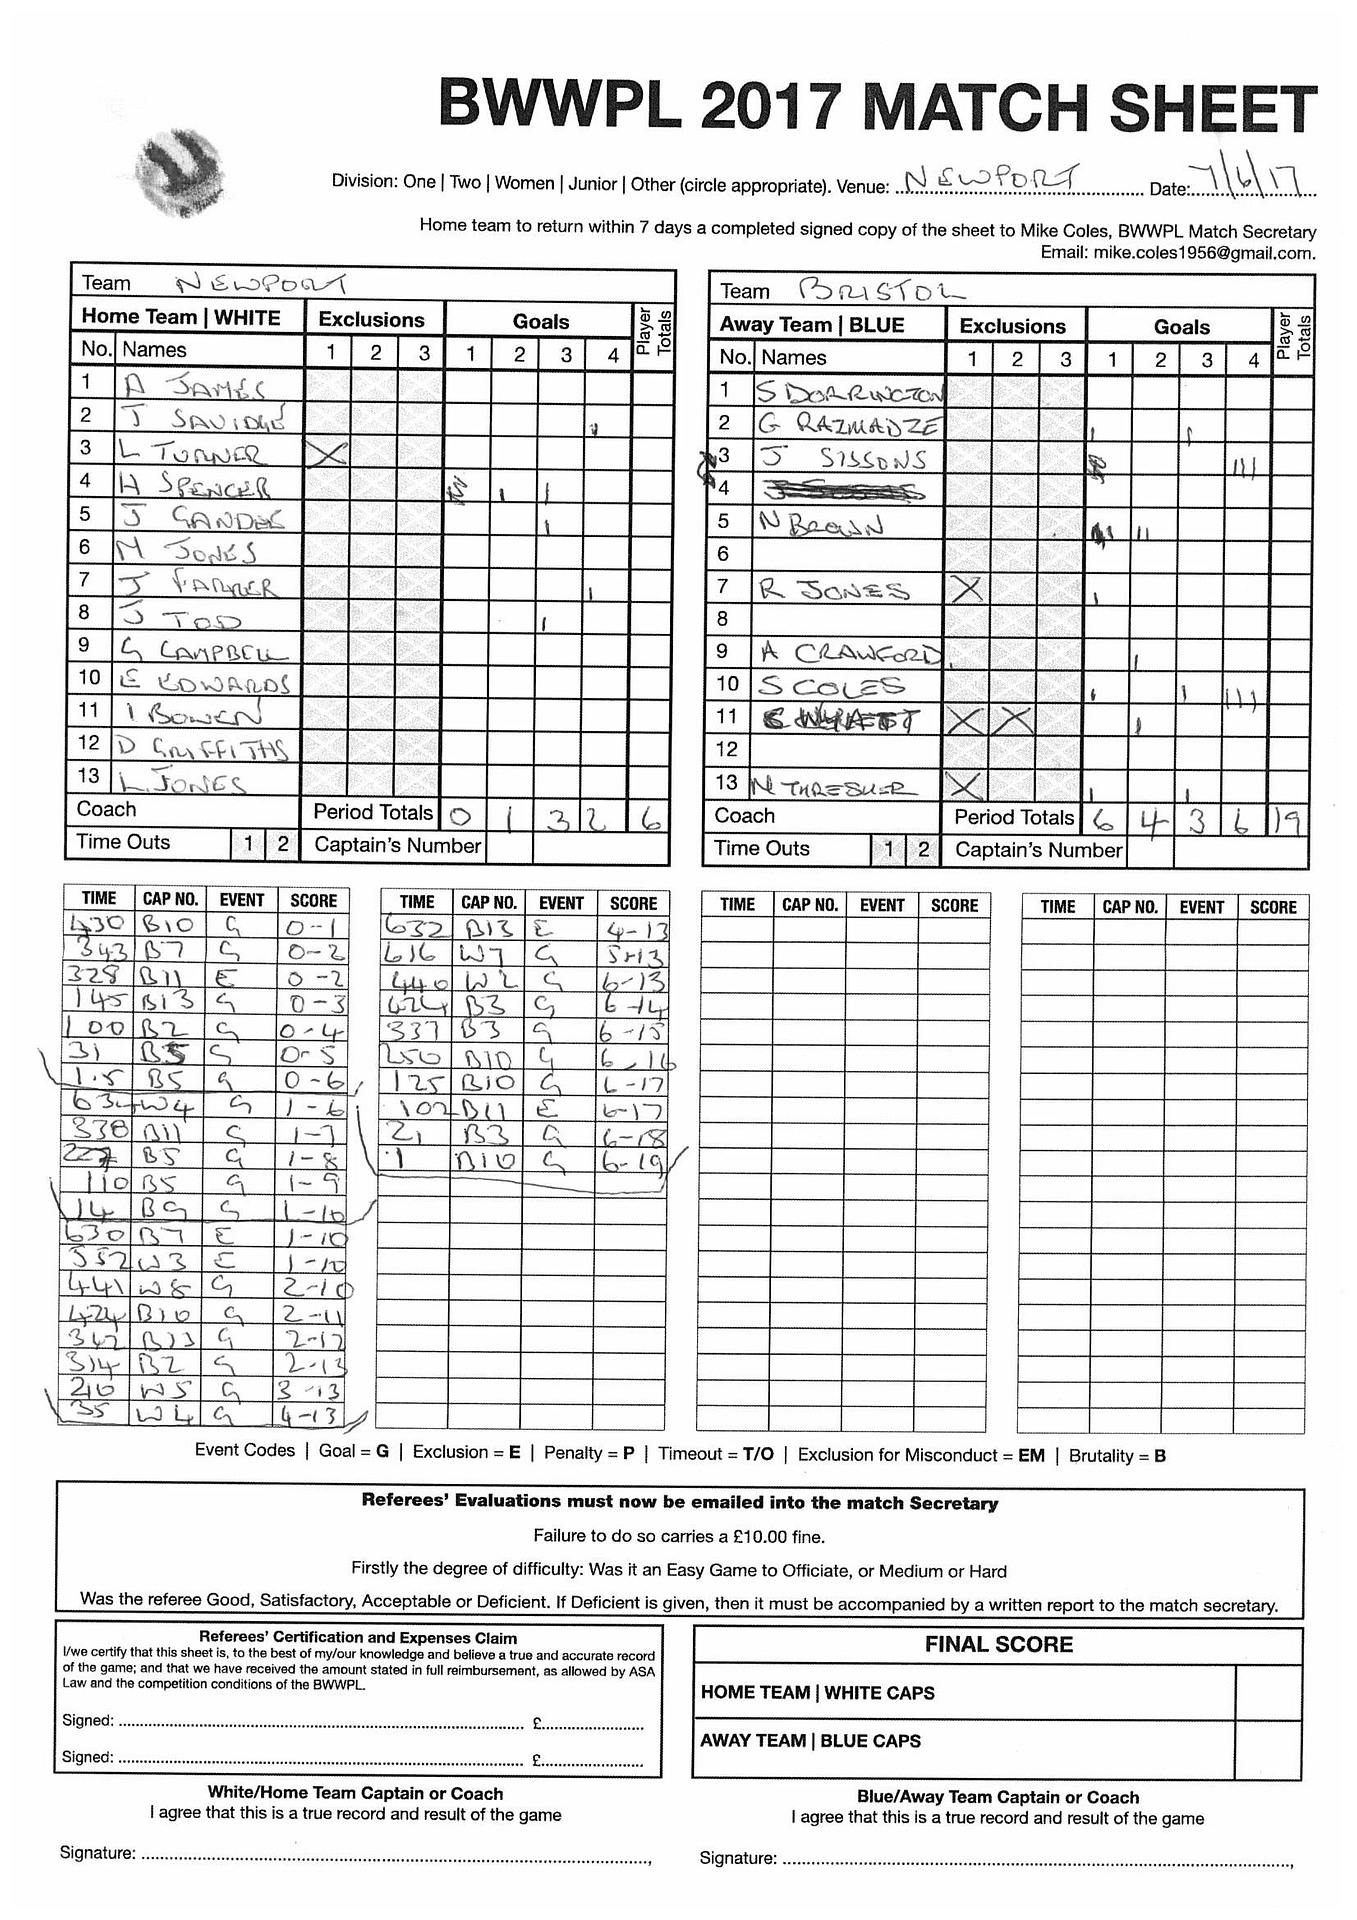 BWWPL 2017 MATCH SHEET
Division: One | Two | Women | Junior | Other (circle appropriate). Venue: NEWPORT Date: 7/6/17
Home team to return within 7 days a completed signed copy of the sheet to Mike Coles, BWWPL Match Secretary
Email: mike.coles1956@gmail.com.
Team NEWPORT
Home Team | WHITE Exclusions Goals Player Totals
No. Names 1 2 3 1 2 3 4
1 A JAMES
2 J SAVIDGE
3 L TURNER X
4 H SPENCER
5 J GANDER
6 M JONES
7 J FARMER
8 J TOD
9 G CAMPBELL
10 E EDWARDS
11 I BOWEN
12 D GRIFFITHS
13 L. JONES
Coach Period Totals 0 1 3 2 6
Time Outs 1 2 Captain's Number
Team BRISTOL
Away Team | BLUE Exclusions Goals Player Totals
No. Names 1 2 3 1 2 3 4
1 S DORRINGTON
2 G RAZMADZE
3 J SISSONS
4
5 N BROWN
6
7 R JONES X
8
9 A CRAWFORD
10 S COLES
11 WYATT X X
12
13 N THRESHER X
Coach Period Totals 6 4 3 6 19
Time Outs 1 2 Captain's Number
TIME CAP NO. EVENT SCORE
430 B10 G 0-1
343 B7 G 0-2
328 B11 E 0-2
145 B13 G 0-3
100 B2 G 0-4
31 B5 G 0-5
1.5 B5 G 0-6
634 W4 G 1-6
338 B11 G 1-7
227 B5 G 1-8
110 B5 G 1-9
14 B9 G 1-10
630 B7 E 1-10
552 W3 E 1-10
441 W8 G 2-10
424 B10 G 2-11
342 B13 G 2-12
314 B2 G 2-13
210 W5 G 3-13
35 W4 G 4-13
TIME CAP NO. EVENT SCORE
632 B13 E 4-13
616 W7 G 5-13
440 W2 G 6-13
424 B3 G 6-14
337 B3 G 6-15
250 B10 G 6-16
125 B10 G 6-17
102 B11 E 6-17
21 B3 G 6-18
1 B10 G 6-19
TIME CAP NO. EVENT SCORE
TIME CAP NO. EVENT SCORE
Event Codes | Goal = G | Exclusion = E | Penalty = P | Timeout = T/O | Exclusion for Misconduct = EM | Brutality = B
Referees' Evaluations must now be emailed into the match Secretary
Failure to do so carries a £10.00 fine.
Firstly the degree of difficulty: Was it an Easy Game to Officiate, or Medium or Hard
Was the referee Good, Satisfactory, Acceptable or Deficient. If Deficient is given, then it must be accompanied by a written report to the match secretary.
Referees' Certification and Expenses Claim
I/we certify that this sheet is, to the best of my/our knowledge and believe a true and accurate record
of the game; and that we have received the amount stated in full reimbursement, as allowed by ASA
Law and the competition conditions of the BWWPL.
Signed: £
Signed: £
FINAL SCORE
HOME TEAM | WHITE CAPS
AWAY TEAM | BLUE CAPS
White/Home Team Captain or Coach
I agree that this is a true record and result of the game
Signature:
Blue/Away Team Captain or Coach
I agree that this is a true record and result of the game
Signature: